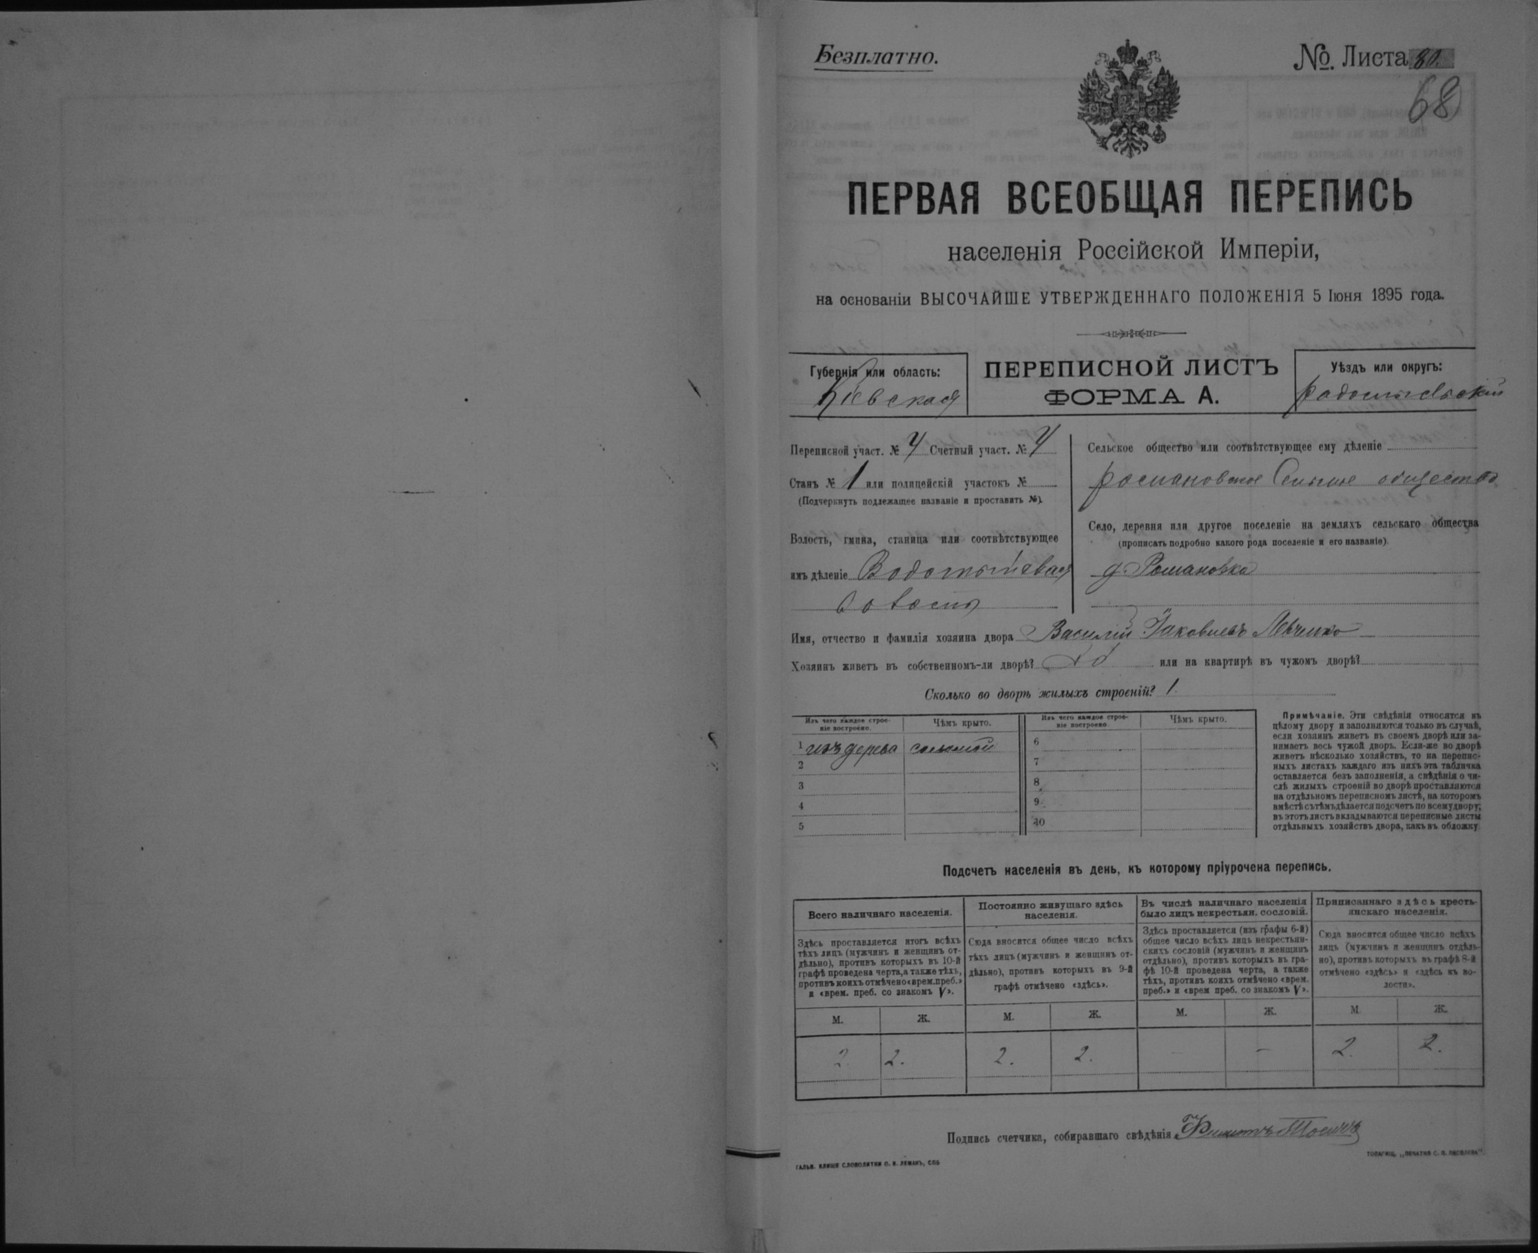 Безплатно.
№. Листа 80.
68
ПЕРВАЯ ВСЕОБЩАЯ ПЕРЕПИСЬ
населенія Россійской Имперіи,
на основаніи ВЫСОЧАЙШЕ УТВЕРЖДЕННАГО ПОЛОЖЕНІЯ 5 Іюня 1895 года.
Губернія или область:
Кіевская
ПЕРЕПИСНОЙ ЛИСТЪ
ФОРМА А.
Уѣздъ или округъ:
Радомысльскій
Переписной участ. № 4 Счетный участ. № 4
Станъ № 1 или полицейскій участокъ №
(Подчеркнуть подлежащее названіе и проставить №).
Волость, гмина, станица или соотвѣтствующее
имъ дѣленіе
волость
Сельское общество или соотвѣтствующее ему дѣленіе
Романовское Сельское общество
Село, деревня или другое поселеніе на земляхъ сельскаго общества
(прописать подробно какого рода поселеніе и его названіе).
д. Романовка
Имя, отчество и фамилія хозяина двора Василій Яковлевъ
Хозяинъ живетъ въ собственномъ-ли дворѣ? или на квартирѣ въ чужомъ дворѣ?
Сколько во дворѣ жилыхъ строеній? 1.
Изъ чего каждое строеніе построено.
Чѣмъ крыто.
Изъ чего каждое строеніе построено.
Чѣмъ крыто.
1 изъ дерева соломой
2
3
4
5
6
7
8
9
10
Примѣчаніе. Эти свѣдѣнія относятся къ
цѣлому двору и заполняются только въ случаѣ,
если хозяинъ живетъ въ своемъ дворѣ или за-
нимаетъ весь чужой дворъ. Если-же во дворѣ
живетъ нѣсколько хозяйствъ, то на перепис-
ныхъ листахъ каждаго изъ нихъ эта табличка
оставляется безъ заполненія, а свѣдѣнія о чи-
слѣ жилыхъ строеній во дворѣ проставляются
на отдѣльномъ переписномъ листѣ, на которомъ
вмѣстѣ съ тѣмъ дѣлается подсчетъ по всему двору;
въ этотъ листъ вкладываются переписные листы
отдѣльныхъ хозяйствъ двора, какъ въ обложку.
Подсчетъ населенія въ день, къ которому пріурочена перепись.
Всего наличнаго населенія.
Здѣсь проставляется итогъ всѣхъ
тѣхъ лиц (мужчинъ и женщинъ от-
дѣльно), противъ которыхъ въ 10-й
графѣ проведена черта, а также тѣхъ,
противъ коихъ отмѣчено «врем. преб.»
и «врем. преб. со знакомъ V».
Постоянно живущаго здѣсь
населенія.
Сюда вносится общее число всѣхъ
тѣхъ лицъ (мужчинъ и женщинъ от-
дѣльно), противъ которыхъ въ 9-й
графѣ отмѣчено «здѣсь».
Въ числѣ наличнаго населенія
было лицъ некрестьян. сословій.
Здѣсь проставляется (изъ графы 6-й)
общее число всѣхъ лицъ некрестьян-
скихъ сословій (мужчинъ и женщинъ
отдѣльно), противъ которыхъ въ гра-
фѣ 10-й проведена черта, а также
тѣхъ, противъ коихъ отмѣчено «врем.
преб.» и «врем преб. со знакомъ V».
Приписаннаго здѣсь кресть-
янскаго населенія.
Сюда вносится общее число всѣхъ
лицъ (мужчинъ и женщинъ отдѣль-
но), противъ которыхъ въ графѣ 8-й
отмѣчено «здѣсь» и «здѣсь въ во-
лости».
М. Ж. М. Ж. М. Ж. М. Ж.
2 2. 2. 2. — — 2. 2.
Подпись счетчика, собиравшаго свѣдѣнія